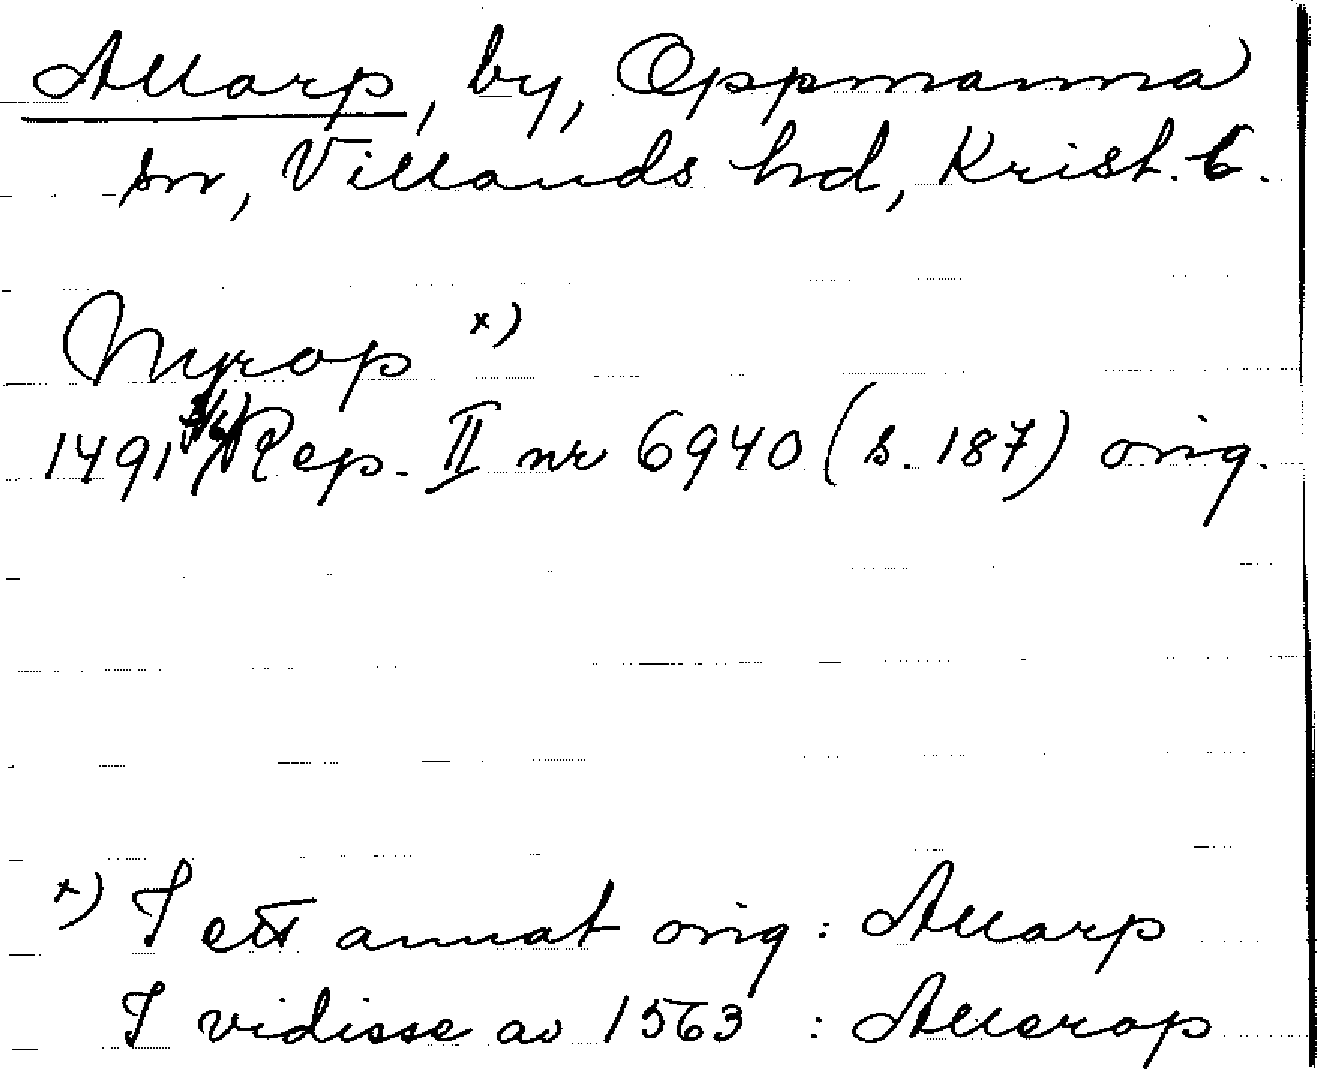 Allarp, by, Oppmanna
sn, Villands hd, Krist. l.
Nyrop x)
1491 Rep. II nr 6940 (s. 187) orig.
x) I ett annat orig: Allarp
I vidisse av 1563 : Allerop